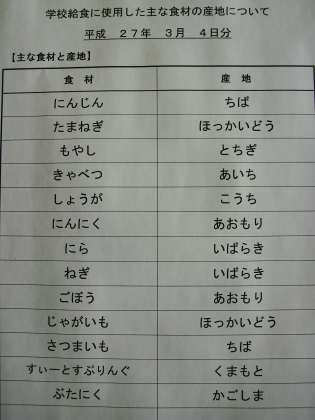 学校給食に使用した主な食材の産地について
平成　２７年　３月　４日分
【主な食材と産地】
食　材　産　地
にんじん　ちば
たまねぎ　ほっかいどう
もやし　とちぎ
きゃべつ　あいち
しょうが　こうち
にんにく　あおもり
にら　いばらき
ねぎ　いばらき
ごぼう　あおもり
じゃがいも　ほっかいどう
さつまいも　ちば
すぃーとすぷりんぐ　くまもと
ぶたにく　かごしま